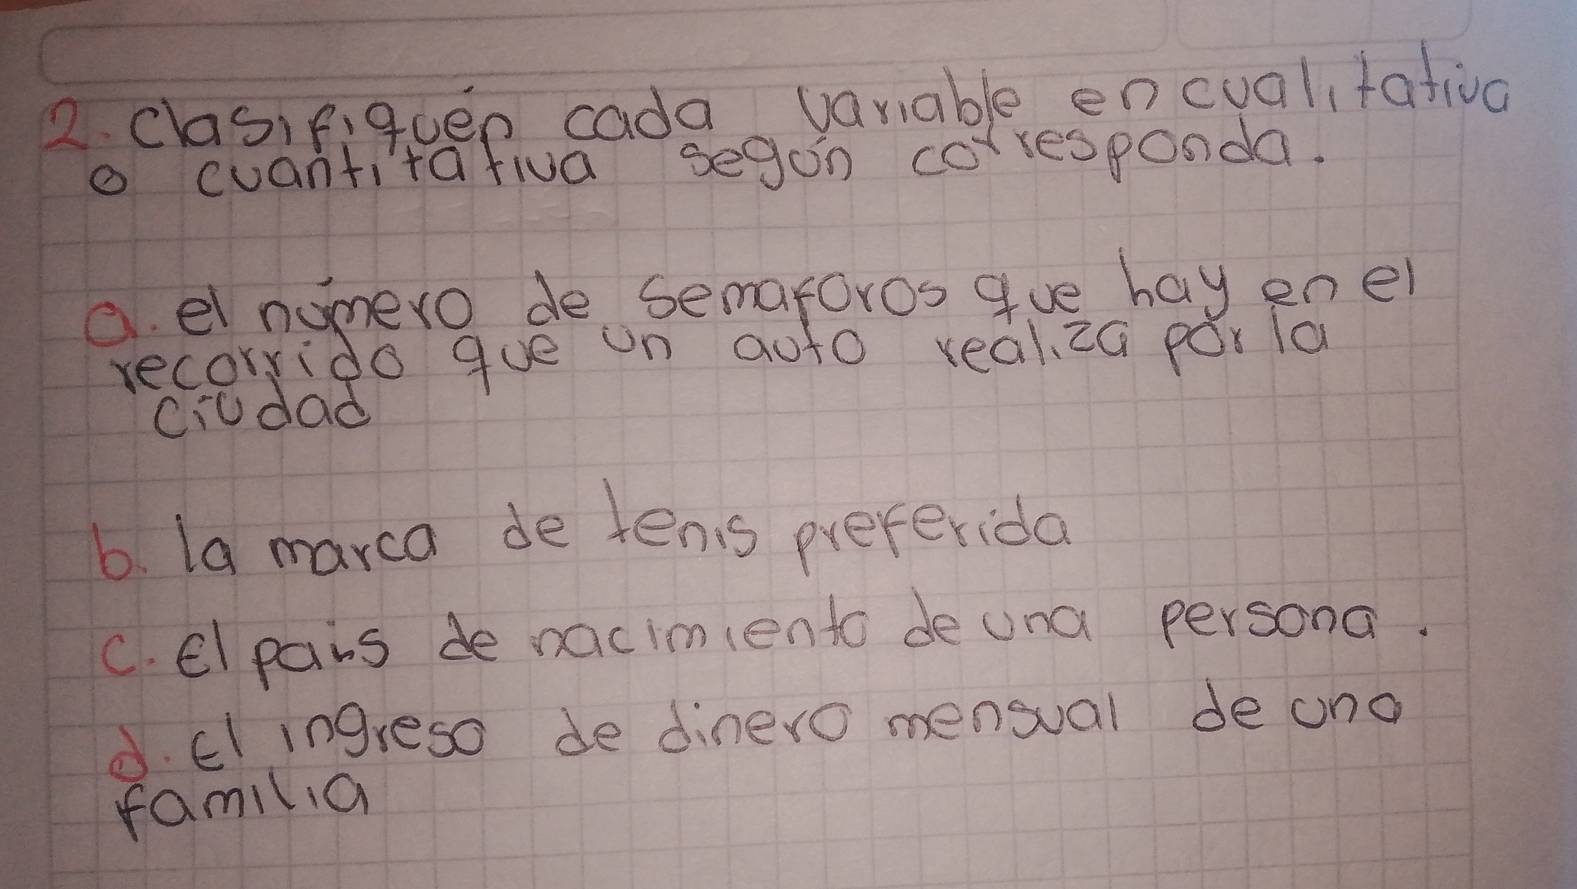 2. Clasifiquen cada variable en cualitativa
o cuantitativa según corresponda.
a. el número de semaforos que hay en el
recorrido que un auto realiza por la
ciudad
b. la marca de tenis preferida
c. El pais de nacimiento de una persona.
d. El ingreso de dinero mensual de una
familia